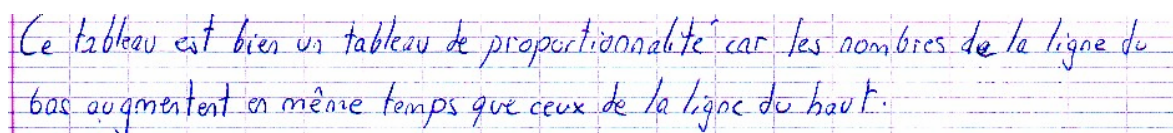 Ce tableau est bien un tableau de proportionnalité car les nombres de la ligne du
bas augmentent en même temps que ceux de la ligne du haut.